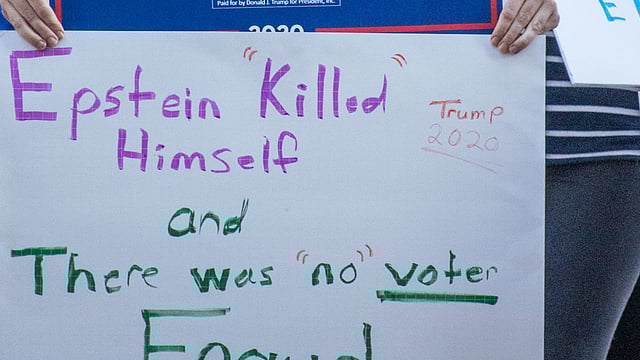 Paid for by Donald J. Trump for President, Inc.
2020
Epstein "Killed"
Himself
Trump
2020
and
There was "no" voter
Fraud
E